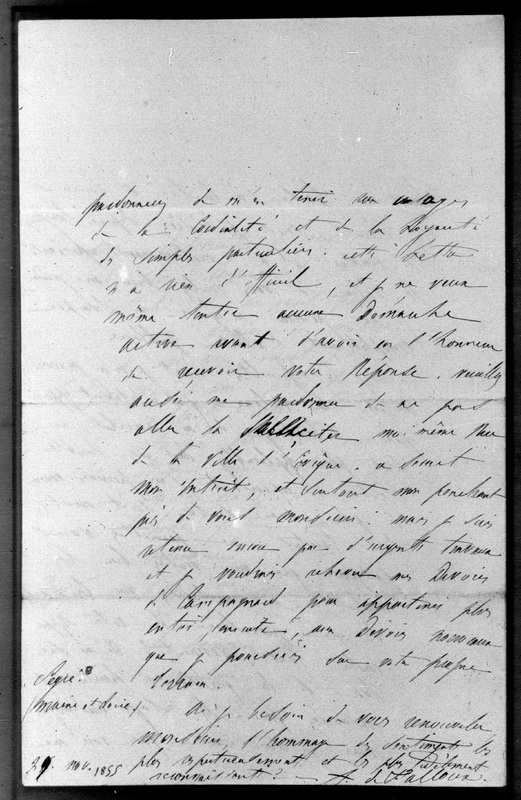 pardonnerez de m'en tenir aux usages
de la Cordialité et de la Loyauté
des simples particuliers. cette Lettre
n'a rien d'officiel, et je ne veux
même tenter aucune Démarche
active avant d'avoir eu l'Honneur
de recevoir votre Réponse. veuillez
aussi me pardonner de ne pas
aller la solliciter moi même Rue
de la Ville l'Evêque. ce serait
mon intérêt, et surtout mon penchant
près de vous Monsieur: mais je suis
retenu encore par d'urgents travaux
et je voudrais achever mes Devoirs
de Campagnard pour appartenir plus
entièrement, aux Devoirs nouveaux
que je
terrain.
Segré.
(Maine et Loire)
ai-je besoin de vous renouveler
Monsieur l'hommage des sentiments les
plus respectueusement et les plus
reconnaissant? A. de Falloux
29 nov. 1855